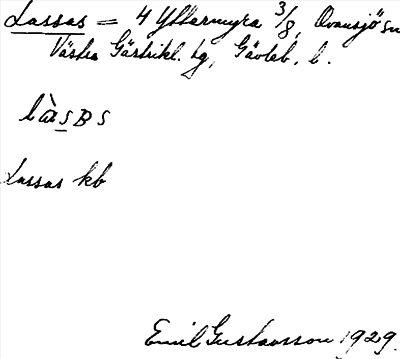 Lassas = 4 Yttermyra 3/8, Ovansjö sn
Västra Gästrikl. tg, Gävleb. l.
làsʙs
Lassas kb
Emil Gustavsson 1929.